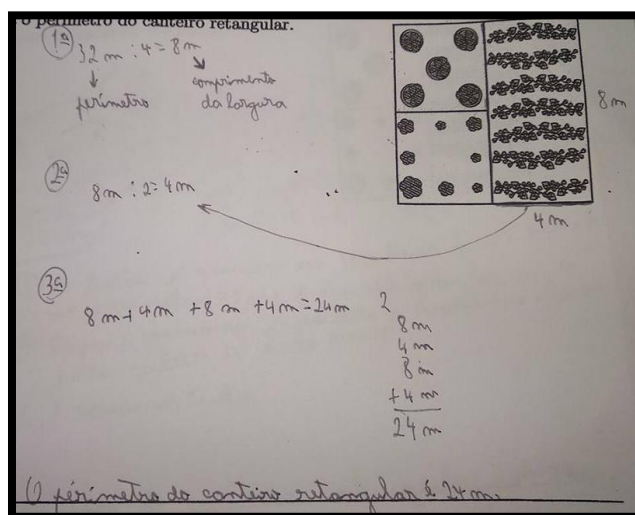 o perímetro do canteiro retangular.
1ª
32 m : 4 = 8m
perímetro
comprimento
da largura
8m
2ª
8m : 2 = 4m
4m
3ª
8m + 4m + 8m + 4m = 24m
2
8m
4m
8m
+4m
24m
O périmetro do canteiro retangular é 24m.